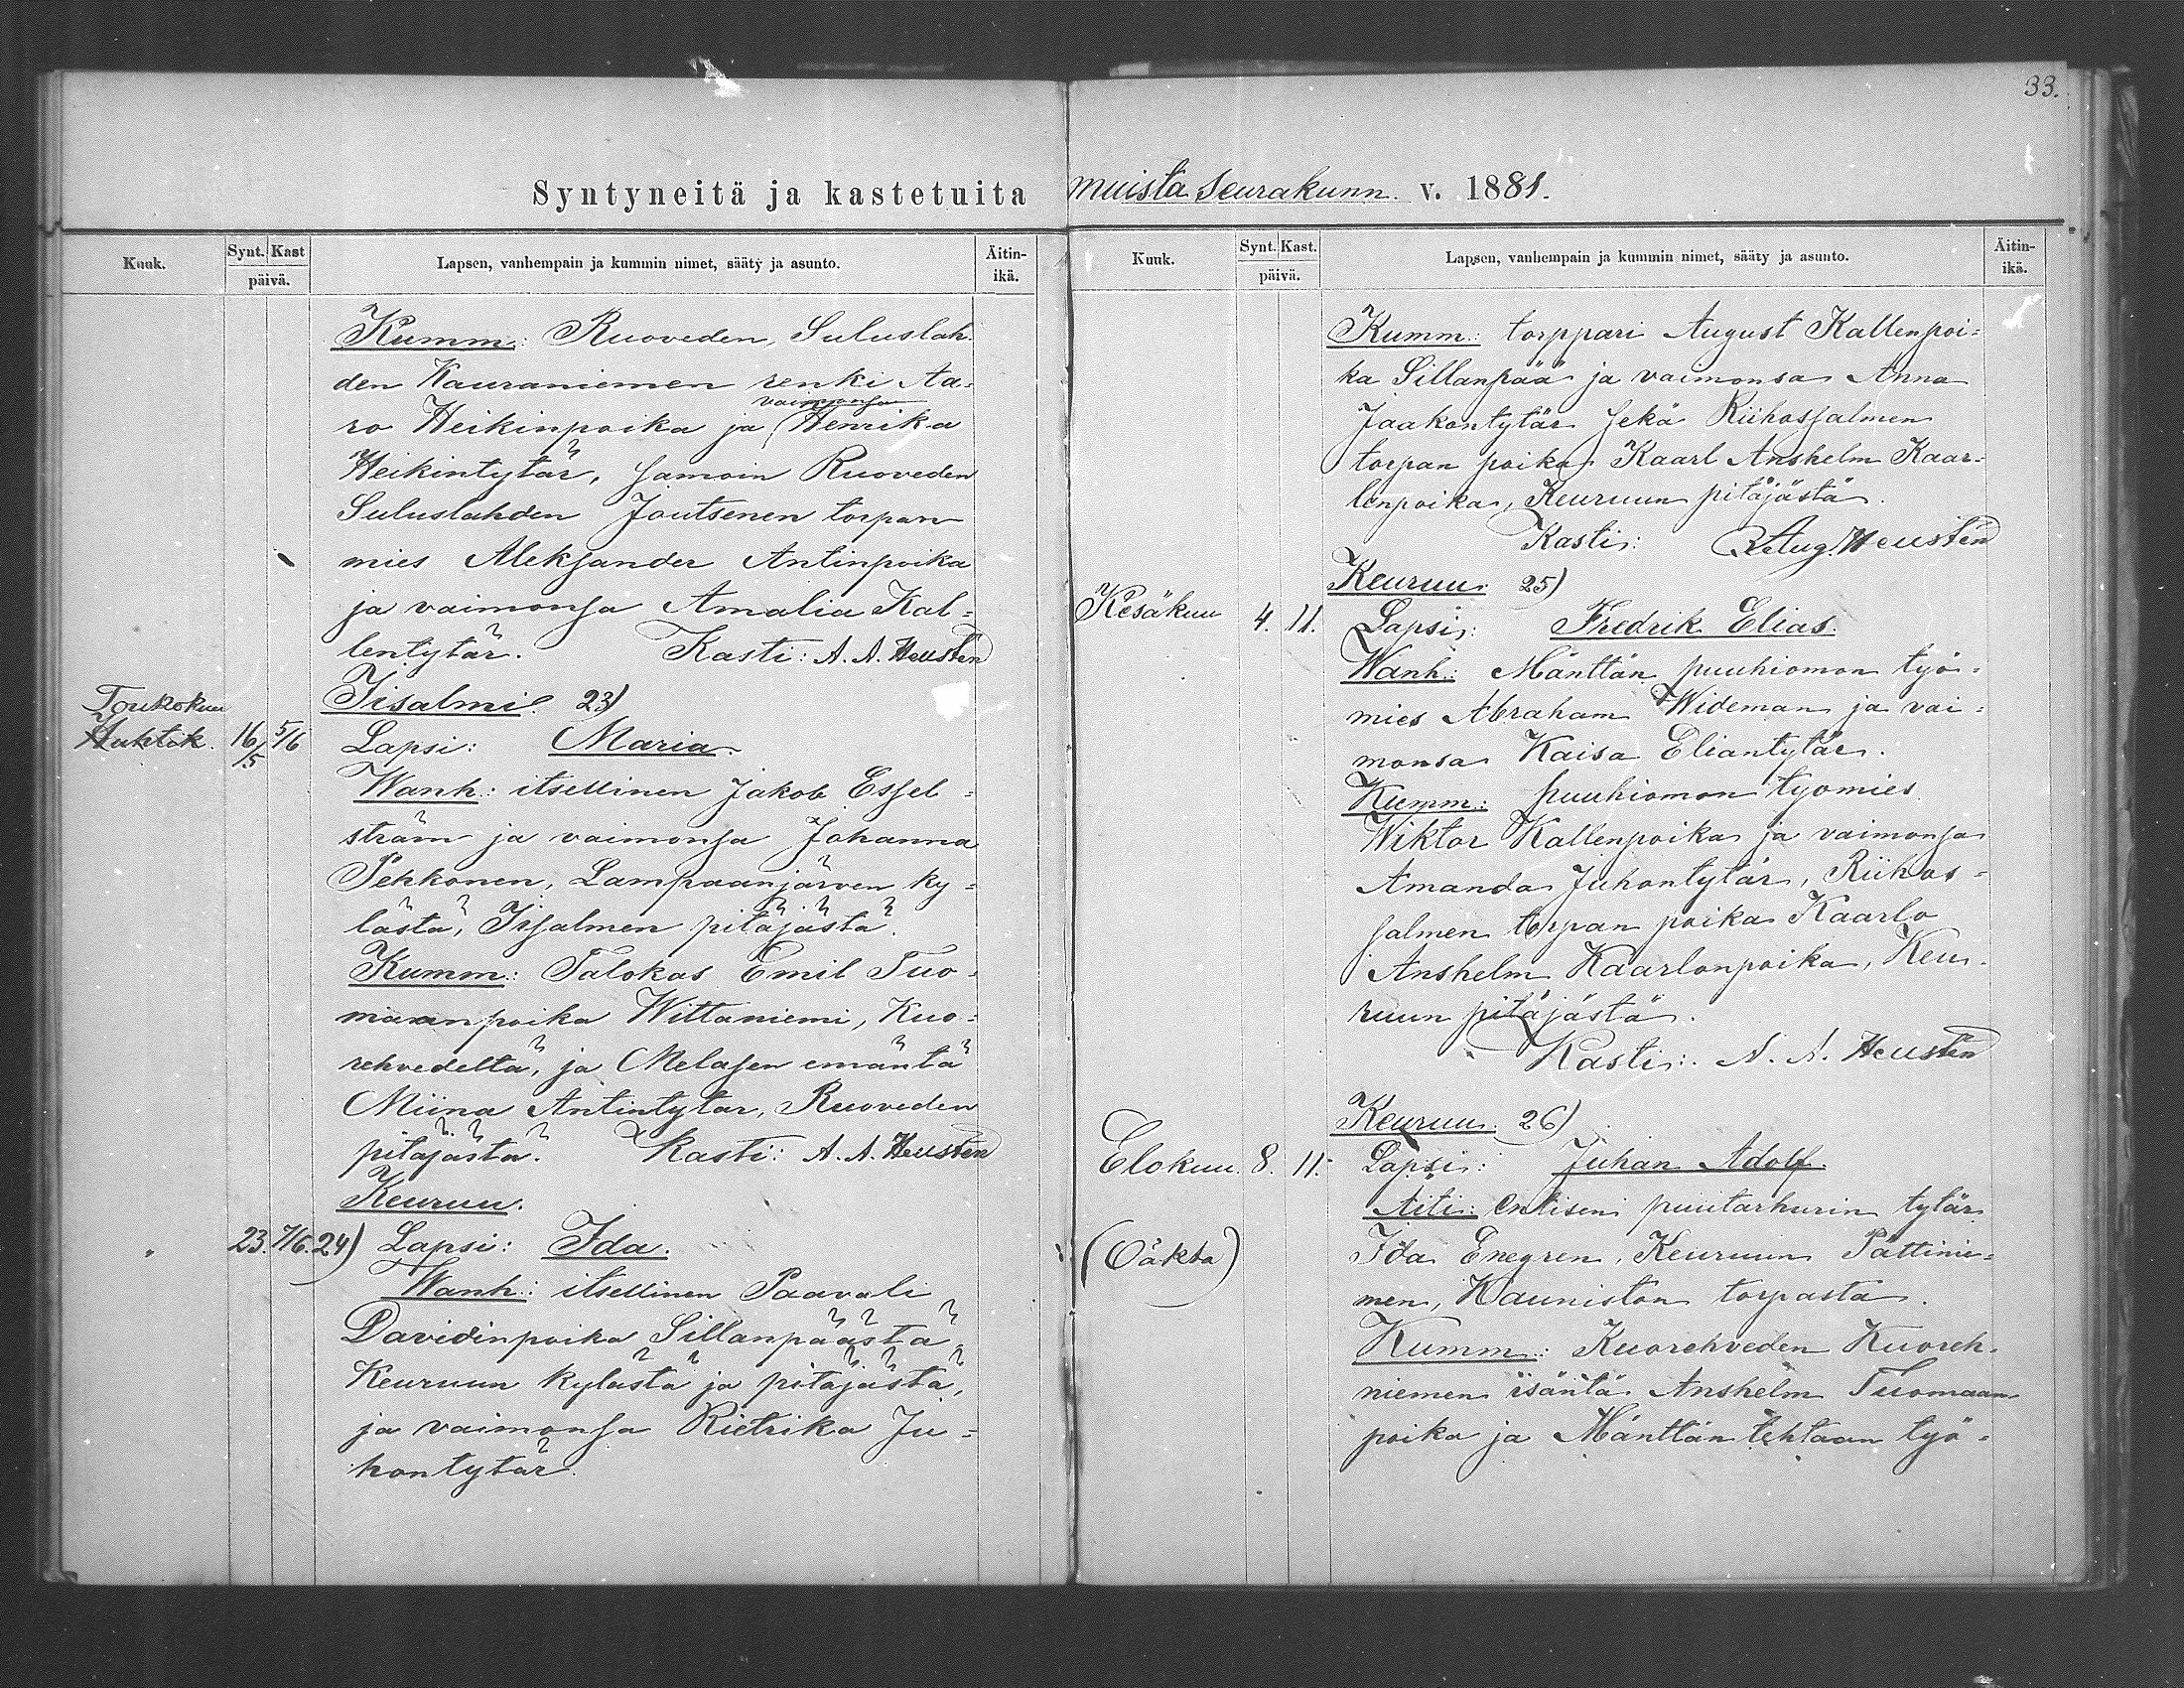 33.
Syntyneitä ja kastetuita muista seurakunn. v. 1881.
Kuuk. Synt. Kast päivä. Lapsen, vanhempain ja kummin nimet, sääty ja asunto. Äitin-ikä.
Kumm: Ruoveden, Suluslah-
den Kauraniemen renki Aa-
vaimonsa
ro Heikinpoika ja Henrika
Heikintytär, samoin Ruoveden
Suluslahden Joutsenen torpan
mies Aleksander Antinpoika
ja vaimonsa Amalia Kal-
lentytär. Kasti: A. A. Heusten
Toukokuu
Iisalmi. 23)
Huhtik. 16/5 5/6 Lapsi: Maria.
Wanh: itsellinen Jakob Essel-
ström ja vaimonsa Johanna
Pehkonen, Lampaanjärven ky-
lästä, Iisalmen pitäjästä.
Kumm: Talokas Emil Tuo-
maanpoika Wittaniemi, Kuo-
rehvedeltä, ja Melasen emäntä
Miina Antintytar, Ruoveden
pitäjästä. Kasti: A. A. Heusten
Keuruu.
" 23. 7/6. 24) Lapsi: Ida.
Wanh: itsellinen Paavali
Davidinpoika Sillanpäästä,
Keuruun kylästä ja pitäjästä,
ja vaimonsa Rietrika Ju-
hontytär.
Kuuk. Synt. Kast. päivä. Lapsen, vanhempain ja kummin nimet, sääty ja asunto. Äitin-ikä.
Kumm: torppari August Kallenpoi-
ka Sillanpää ja vaimonsa Anna
Jaakontytär sekä Riihossalmen
torpan poika Kaarl Anshelm Kaar-
lenpoika, Keuruun pitäjästä.
Kasti: Aug. Heusten
Keuruu 25)
Kesäkuu 4. 11. Lapsi: Fredrik Elias.
Wanh: Mänttän puuhiomon työ-
mies Abraham Wideman ja vai-
monsa Kaisa Eliantytär.
Kumm: puuhiomon työmies
Wiktor Kallenpoika ja vaimonsa
Amanda Juhontytär, Riihos-
salmen torpan poika Kaarlo
Anshelm Kaarlonpoika, Keu-
ruun pitäjästä.
Kasti: A. A. Heusten
Keuruu. 26)
Elokuu. 8. 11. Lapsi: Juhan Adolf.
Äiti: Entisen puutarhurin tytär
(Oäkta) Ida Enegren, Keuruun Pättinie-
men, Kauniston torpasta.
Kumm: Kuorehveden Kuoreh-
niemen isäntä Anshelm Tuomaan-
poika ja Mänttän tehtaan työ-